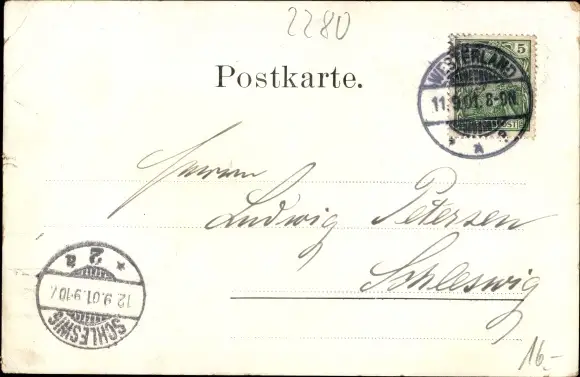 2280
5
Postkarte.
WESTERLAND
11.9.01. 8-9N.
* A *
Herrn
Ludwig Petersen
Schleswig
* 2 a *
12.9.01.9-10
SCHLESWIG
16.-